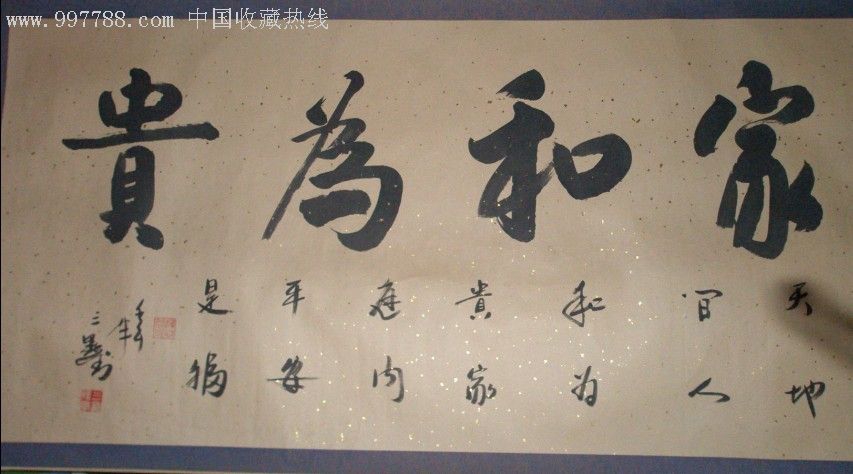 www.997788.com 中国收藏热线
家和為貴
天地
间人
和为
貴家
庭内
平安
是福